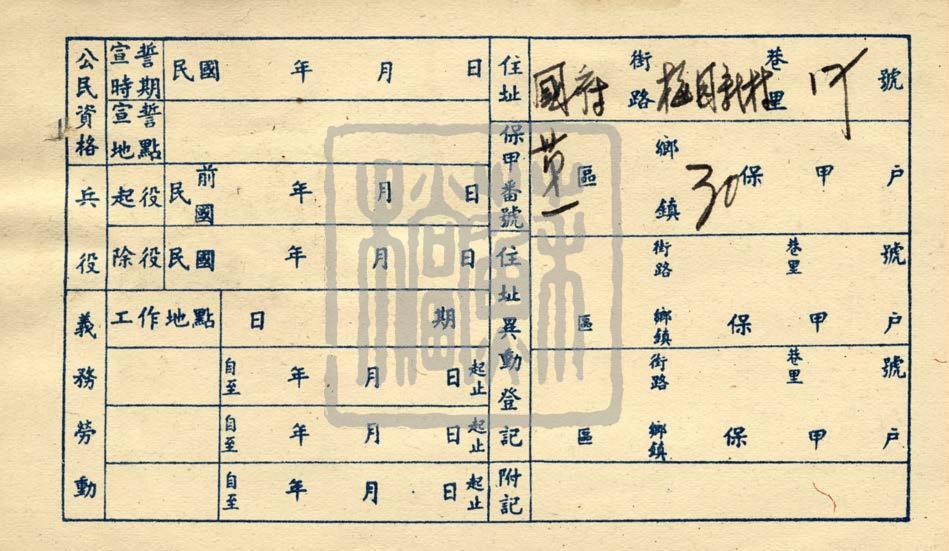 公民資格
宣誓時期 民國 年 月 日
宣誓地點
兵役
起役 民前國 年 月 日
除役 民國 年 月 日
義務勞動
工作地點 日期
自至 年 月 日 起止
自至 年 月 日 起止
自至 年 月 日 起止
住址 國府 街路 梅園新村 巷里 17 號
保甲番號 第一 區 鄉鎮 30 保 甲 戶
住址異動登記
街路 巷里 號
區 鄉鎮 保 甲 戶
街路 巷里 號
區 鄉鎮 保 甲 戶
附記